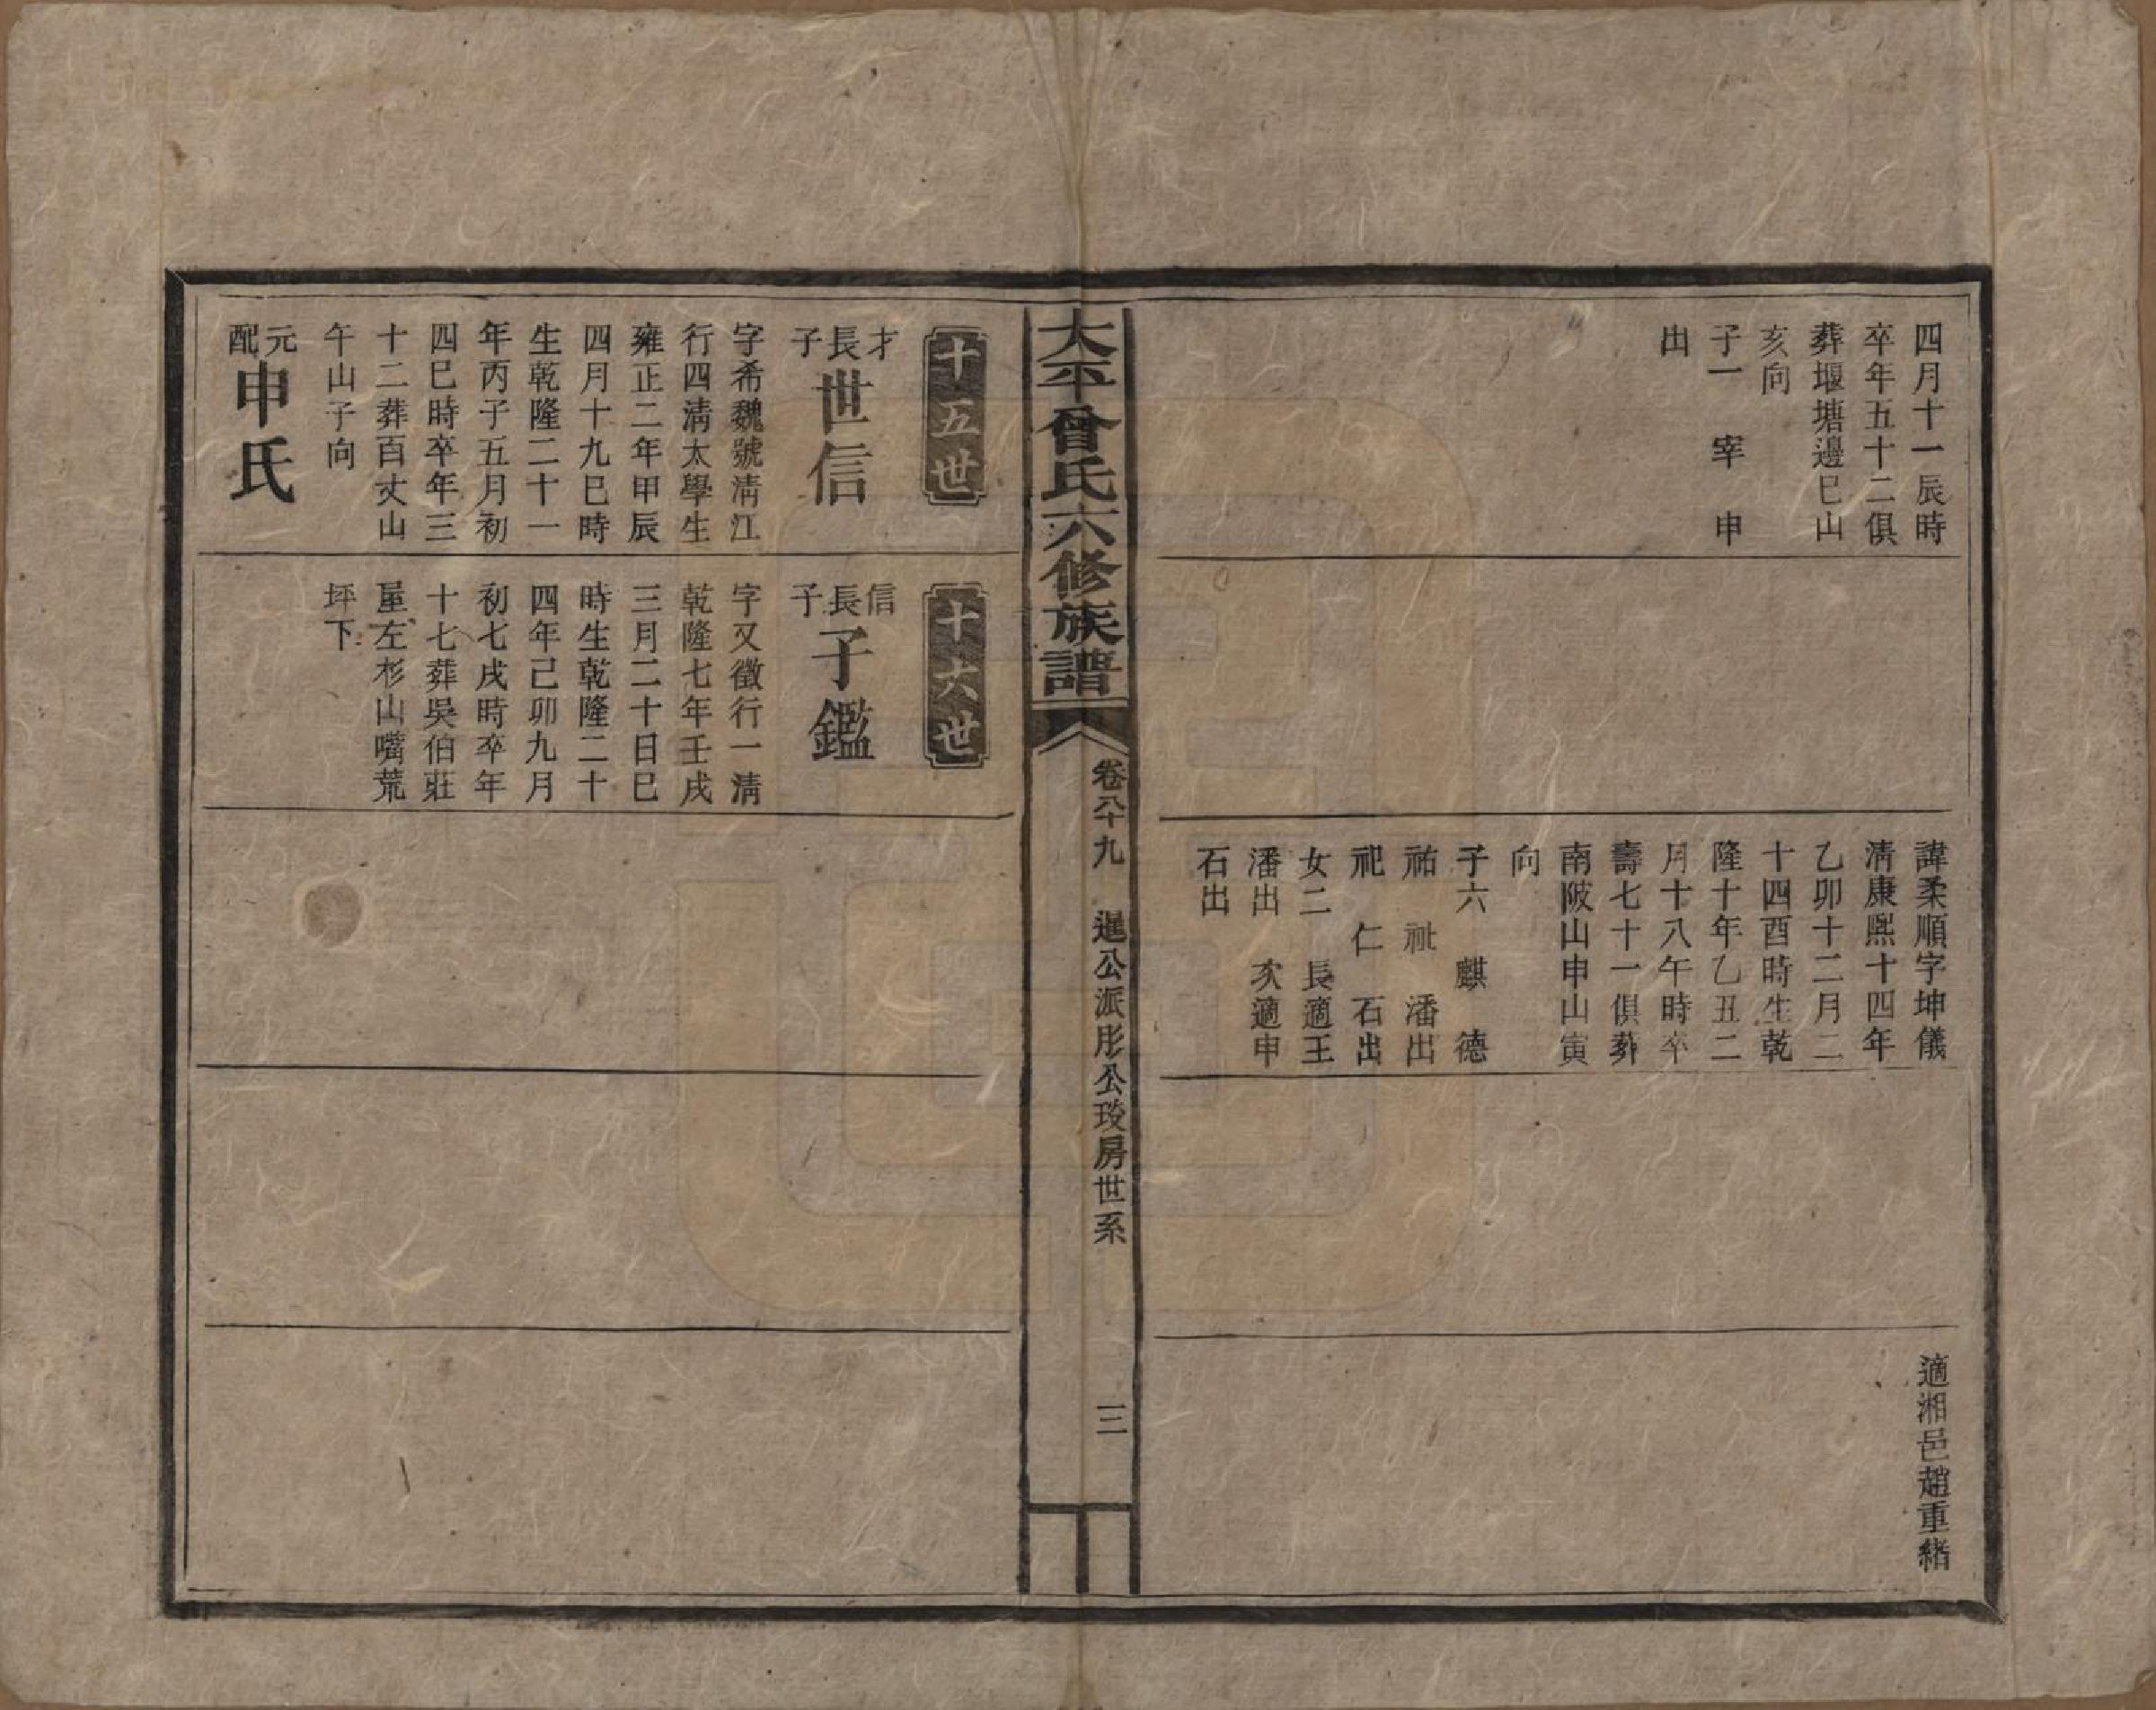 四月十一辰時
卒年五十二俱
葬堰塘邊巳山
亥向
子一　宰　申
出
諱柔順字坤儀
清康熙十四年
乙卯十二月二
十四酉時生乾
隆十年乙丑二
月十八午時卒
壽七十一俱葬
南陂山申山寅
向
子六　麒　德
祐　祉　潘出
祀　仁　石出
女二　長適王
潘出　次適申
石出
適湘邑趙重緒
太平曾氏六修族譜
卷八十九　暹公派彤公珓房世系　三
十五世
才長子　世信
字希魏號清江
行四清太學生
雍正二年甲辰
四月十九巳時
生乾隆二十一
年丙子五月初
四巳時卒年三
十二葬百丈山
午山子向
元配　申氏
十六世
信長子　子鑑
字又徵行一清
乾隆七年壬戌
三月二十日巳
時生乾隆二十
四年己卯九月
初七戌時卒年
十七葬吳伯莊
屋左杉山嘴荒
坪下